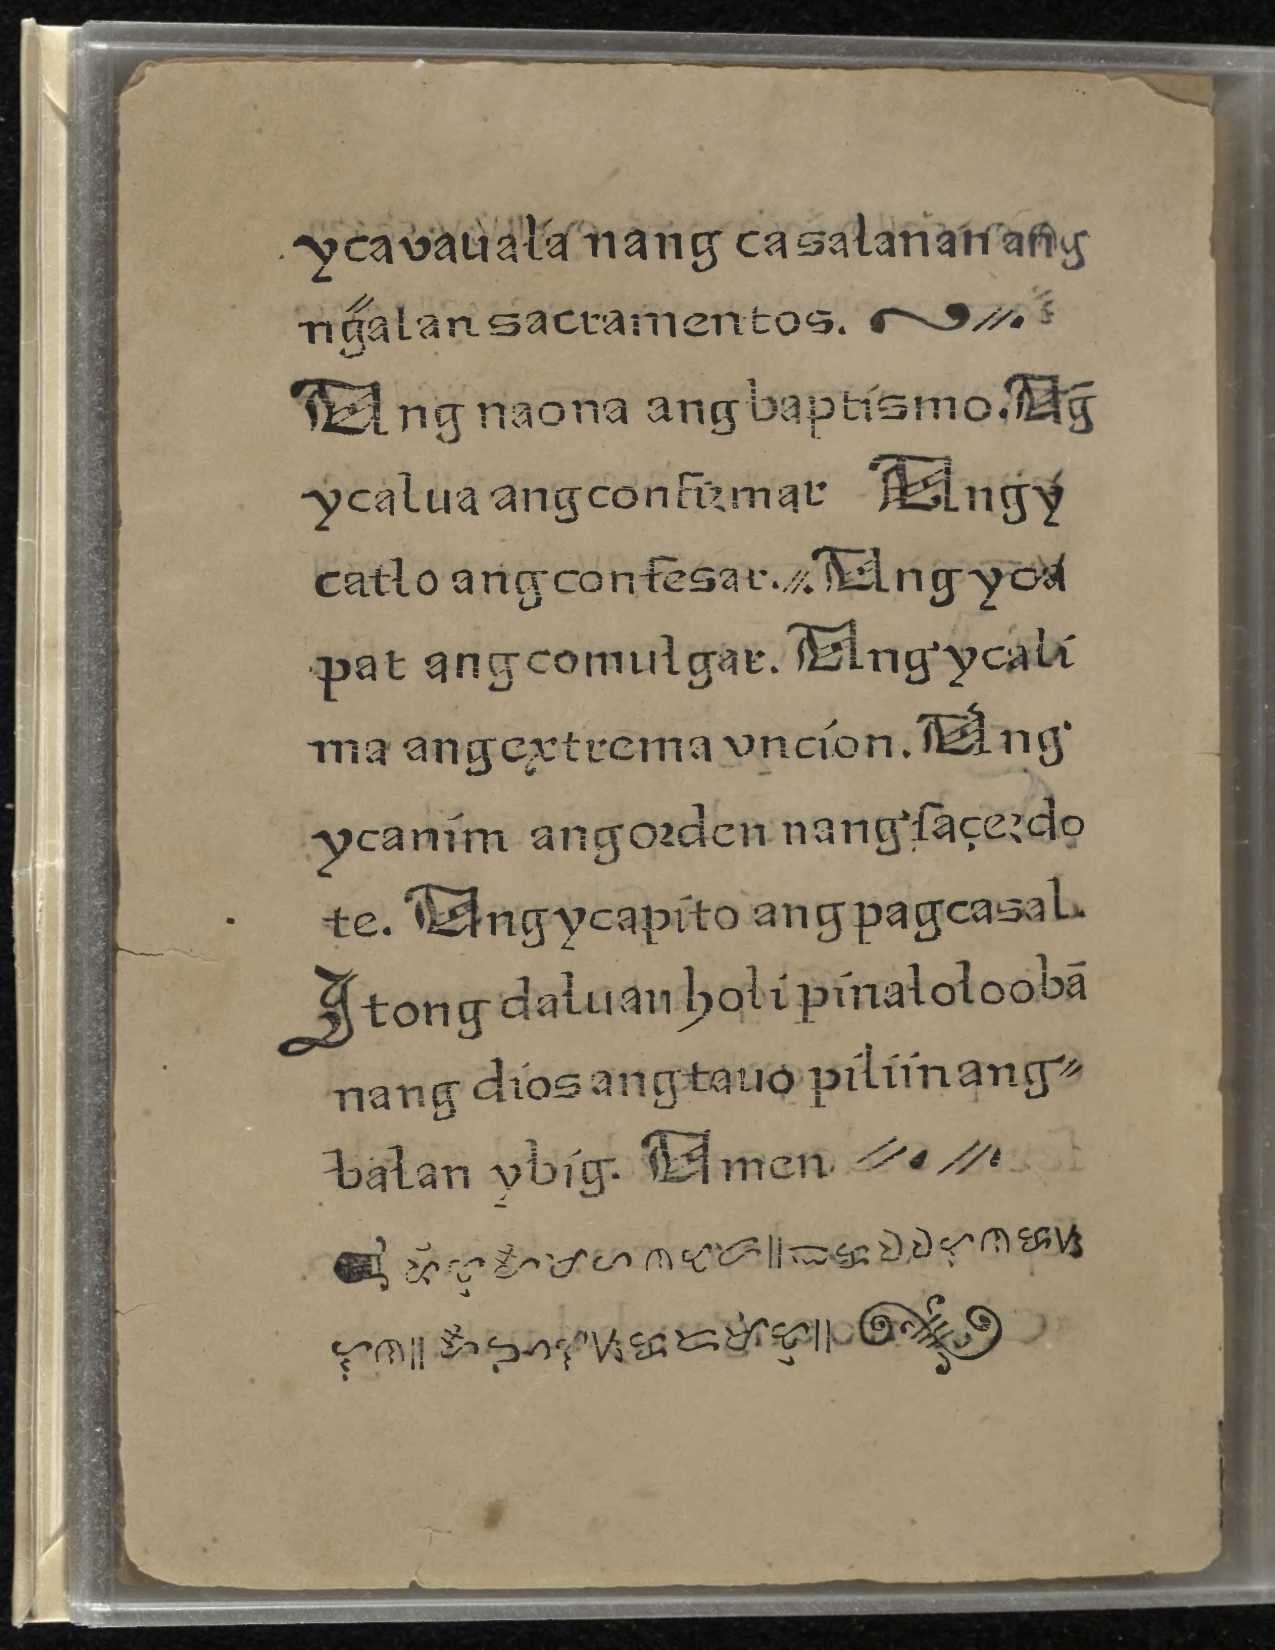 ycavauala nang casalanan ang
ng̃alan sacramentos.
Ang naona ang baptismo. Ãg
ycalua ang confirmar Ang y
catlo ang confesar. Ang yca
pat ang comulgar. Ang ycali
ma ang extrema vncion. Ang
ycanim ang orden nang saçerdo
te. Ang ycapito ang pagcasal.
Itong daluan holi pinaloloobā
nang dios ang tauo piliin ang
balan ybig. Amen